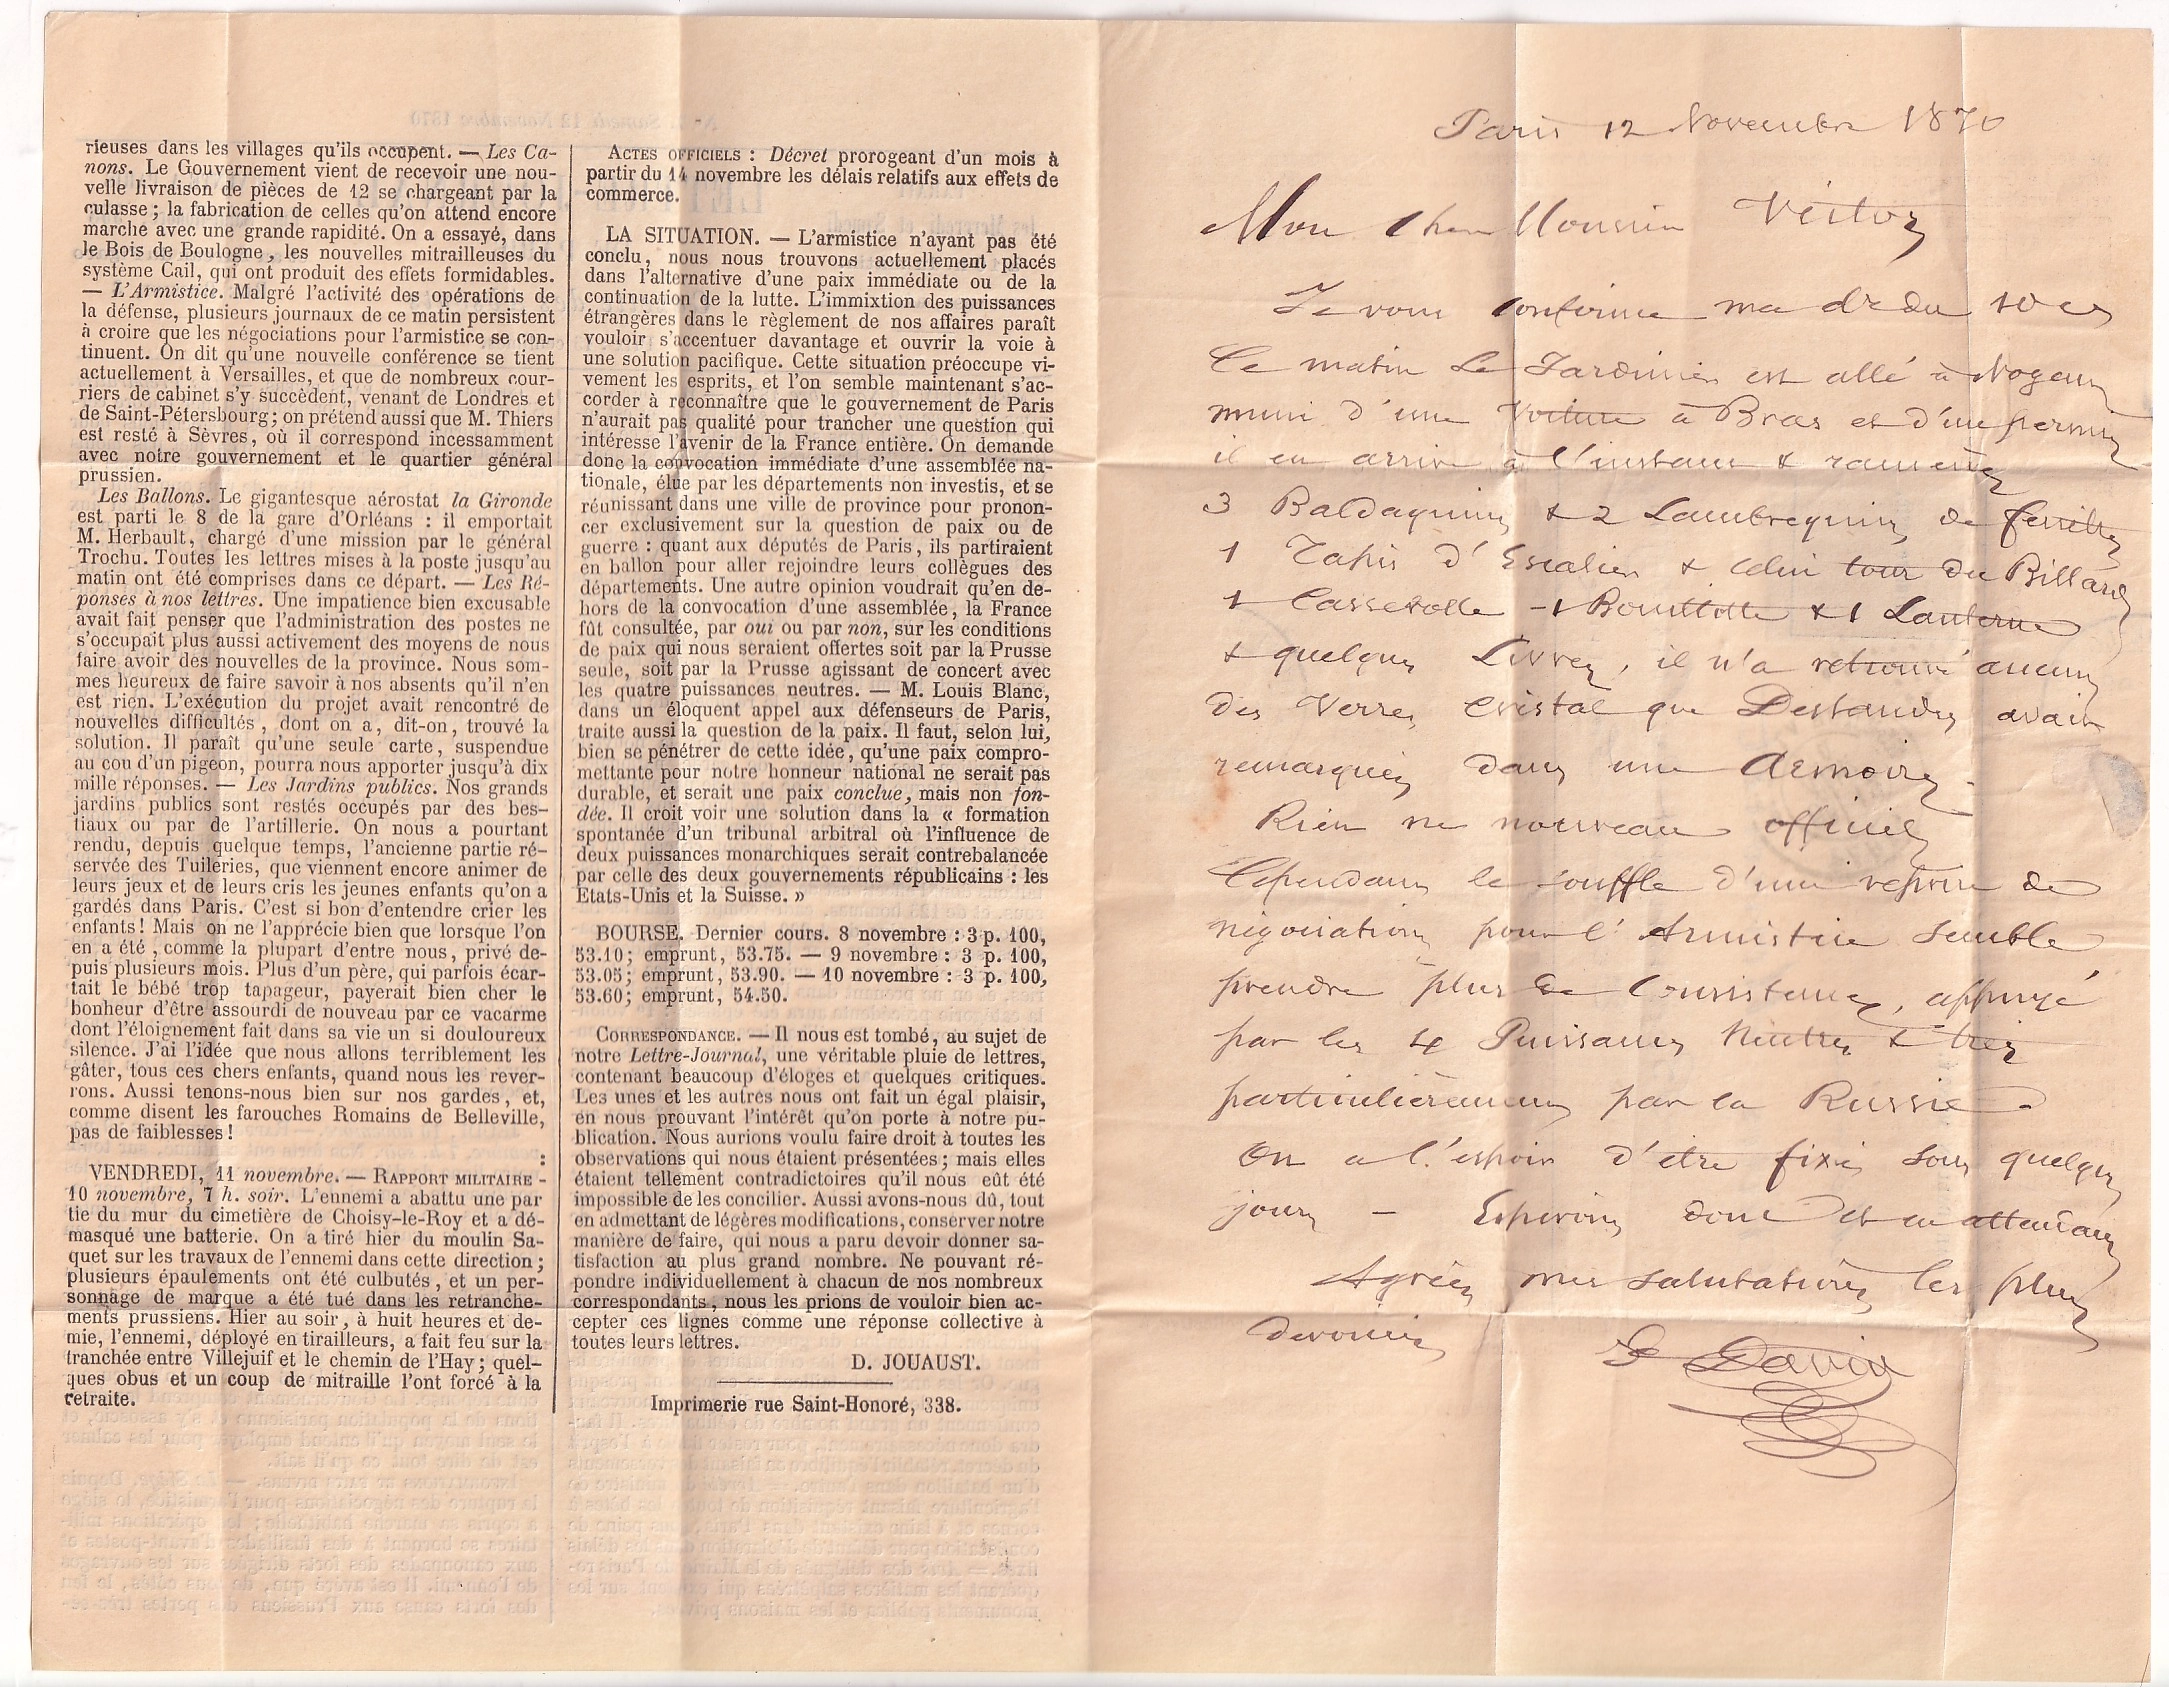 rieuses dans les villages qu'ils occupent. — Les Ca-
nons. Le Gouvernement vient de recevoir une nou-
velle livraison de pièces de 12 se chargeant par la
culasse ; la fabrication de celles qu'on attend encore
marche avec une grande rapidité. On a essayé, dans
le Bois de Boulogne, les nouvelles mitrailleuses du
système Cail, qui ont produit des effets formidables.
— L'Armistice. Malgré l'activité des opérations de
la défense, plusieurs journaux de ce matin persistent
à croire que les négociations pour l'armistice se con-
tinuent. On dit qu'une nouvelle conférence se tient
actuellement à Versailles, et que de nombreux cour-
riers de cabinet s'y succèdent, venant de Londres et
de Saint-Pétersbourg ; on prétend aussi que M. Thiers
est resté à Sèvres, où il correspond incessamment
avec notre gouvernement et le quartier général
prussien.
Les Ballons. Le gigantesque aérostat la Gironde
est parti le 8 de la gare d'Orléans : il emportait
M. Herbault, chargé d'une mission par le général
Trochu. Toutes les lettres mises à la poste jusqu'au
matin ont été comprises dans ce départ. — Les Ré-
ponses à nos lettres. Une impatience bien excusable
avait fait penser que l'administration des postes ne
s'occupait plus aussi activement des moyens de nous
faire avoir des nouvelles de la province. Nous som-
mes heureux de faire savoir à nos absents qu'il n'en
est rien. L'exécution du projet avait rencontré de
nouvelles difficultés, dont on a, dit-on, trouvé la
solution. Il paraît qu'une seule carte, suspendue
au cou d'un pigeon, pourra nous apporter jusqu'à dix
mille réponses. — Les Jardins publics. Nos grands
jardins publics sont restés occupés par des bes-
tiaux ou par de l'artillerie. On nous a pourtant
rendu, depuis quelque temps, l'ancienne partie ré-
servée des Tuileries, que viennent encore animer de
leurs jeux et de leurs cris les jeunes enfants qu'on a
gardés dans Paris. C'est si bon d'entendre crier les
enfants ! Mais on ne l'apprécie bien que lorsque l'on
en a été, comme la plupart d'entre nous, privé de-
puis plusieurs mois. Plus d'un père, qui parfois écar-
tait le bébé trop tapageur, payerait bien cher le
bonheur d'être assourdi de nouveau par ce vacarme
dont l'éloignement fait dans sa vie un si douloureux
silence. J'ai l'idée que nous allons terriblement les
gâter, tous ces chers enfants, quand nous les rever-
rons. Aussi tenons-nous bien sur nos gardes, et,
comme disent les farouches Romains de Belleville,
pas de faiblesses !
VENDREDI, 11 novembre. — RAPPORT MILITAIRE -
10 novembre, 7 h. soir. L'ennemi a abattu une par
tie du mur du cimetière de Choisy-le-Roy et a dé-
masqué une batterie. On a tiré hier du moulin Sa-
quet sur les travaux de l'ennemi dans cette direction ;
plusieurs épaulements ont été culbutés, et un per-
sonnage de marque a été tué dans les retranche-
ments prussiens. Hier au soir, à huit heures et de-
mie, l'ennemi, déployé en tirailleurs, a fait feu sur la
tranchée entre Villejuif et le chemin de l'Hay ; quel-
ques obus et un coup de mitraille l'ont forcé à la
retraite.
ACTES OFFICIELS : Décret prorogeant d'un mois à
partir du 14 novembre les délais relatifs aux effets de
commerce.
LA SITUATION. — L'armistice n'ayant pas été
conclu, nous nous trouvons actuellement placés
dans l'alternative d'une paix immédiate ou de la
continuation de la lutte. L'immixtion des puissances
étrangères dans le règlement de nos affaires paraît
vouloir s'accentuer davantage et ouvrir la voie à
une solution pacifique. Cette situation préoccupe vi-
vement les esprits, et l'on semble maintenant s'ac-
corder à reconnaître que le gouvernement de Paris
n'aurait pas qualité pour trancher une question qui
intéresse l'avenir de la France entière. On demande
donc la convocation immédiate d'une assemblée na-
tionale, élue par les départements non investis, et se
réunissant dans une ville de province pour pronon-
cer exclusivement sur la question de paix ou de
guerre : quant aux députés de Paris, ils partiraient
en ballon pour aller rejoindre leurs collègues des
départements. Une autre opinion voudrait qu'en de-
hors de la convocation d'une assemblée, la France
fût consultée, par oui ou par non, sur les conditions
de paix qui nous seraient offertes soit par la Prusse
seule, soit par la Prusse agissant de concert avec
les quatre puissances neutres. — M. Louis Blanc,
dans un éloquent appel aux défenseurs de Paris,
traite aussi la question de la paix. Il faut, selon lui,
bien se pénétrer de cette idée, qu'une paix compro-
mettante pour notre honneur national ne serait pas
durable, et serait une paix conclue, mais non fon-
dée. Il croit voir une solution dans la « formation
spontanée d'un tribunal arbitral où l'influence de
deux puissances monarchiques serait contrebalancée
par celle des deux gouvernements républicains : les
Etats-Unis et la Suisse. »
BOURSE. Dernier cours. 8 novembre : 3 p. 100,
53.10 ; emprunt, 53.75. — 9 novembre : 3 p. 100,
53.05 ; emprunt, 53.90. — 10 novembre : 3 p. 100,
53.60 ; emprunt, 54.50.
CORRESPONDANCE. — Il nous est tombé, au sujet de
notre Lettre-Journal, une véritable pluie de lettres,
contenant beaucoup d'éloges et quelques critiques.
Les unes et les autres nous ont fait un égal plaisir,
en nous prouvant l'intérêt qu'on porte à notre pu-
blication. Nous aurions voulu faire droit à toutes les
observations qui nous étaient présentées ; mais elles
étaient tellement contradictoires qu'il nous eût été
impossible de les concilier. Aussi avons-nous dû, tout
en admettant de légères modifications, conserver notre
manière de faire, qui nous a paru devoir donner sa-
tisfaction au plus grand nombre. Ne pouvant ré-
pondre individuellement à chacun de nos nombreux
correspondants, nous les prions de vouloir bien ac-
cepter ces lignes comme une réponse collective à
toutes leurs lettres.
D. JOUAUST.
Imprimerie rue Saint-Honoré, 338.
Paris 12 Novembre 1870
Mon Cher Monsieur
Je vous Confirme ma du 10 cs
Ce matin Le Jardinier est allé à Nogent
muni d'une Voiture à Bras et d'un permis
il en arrive à l'instant & ramène
3 Baldaquins & 2 Lambrequins de fenêtres
1 Tapis d'Escalier & celui tour du Billard
1 Casserolle - 1 Bouillotte & 1 Lanterne
& quelques Livres, il n'a retrouvé aucun
des Verres Cristal que avait
remarqués dans une Armoire.
Rien de nouveau officiel
Cependant le souffle d'une reprise de
négociations pour l'Armistice semble
prendre plus de Consistance, appuyé
par les 4 Puissances Neutres & très
particulièrement par la Russie.
On a l'espoir d'être fixé sous quelques
jours - Espérons donc et en attendant
Agréez mes salutations les plus
dévouées
David